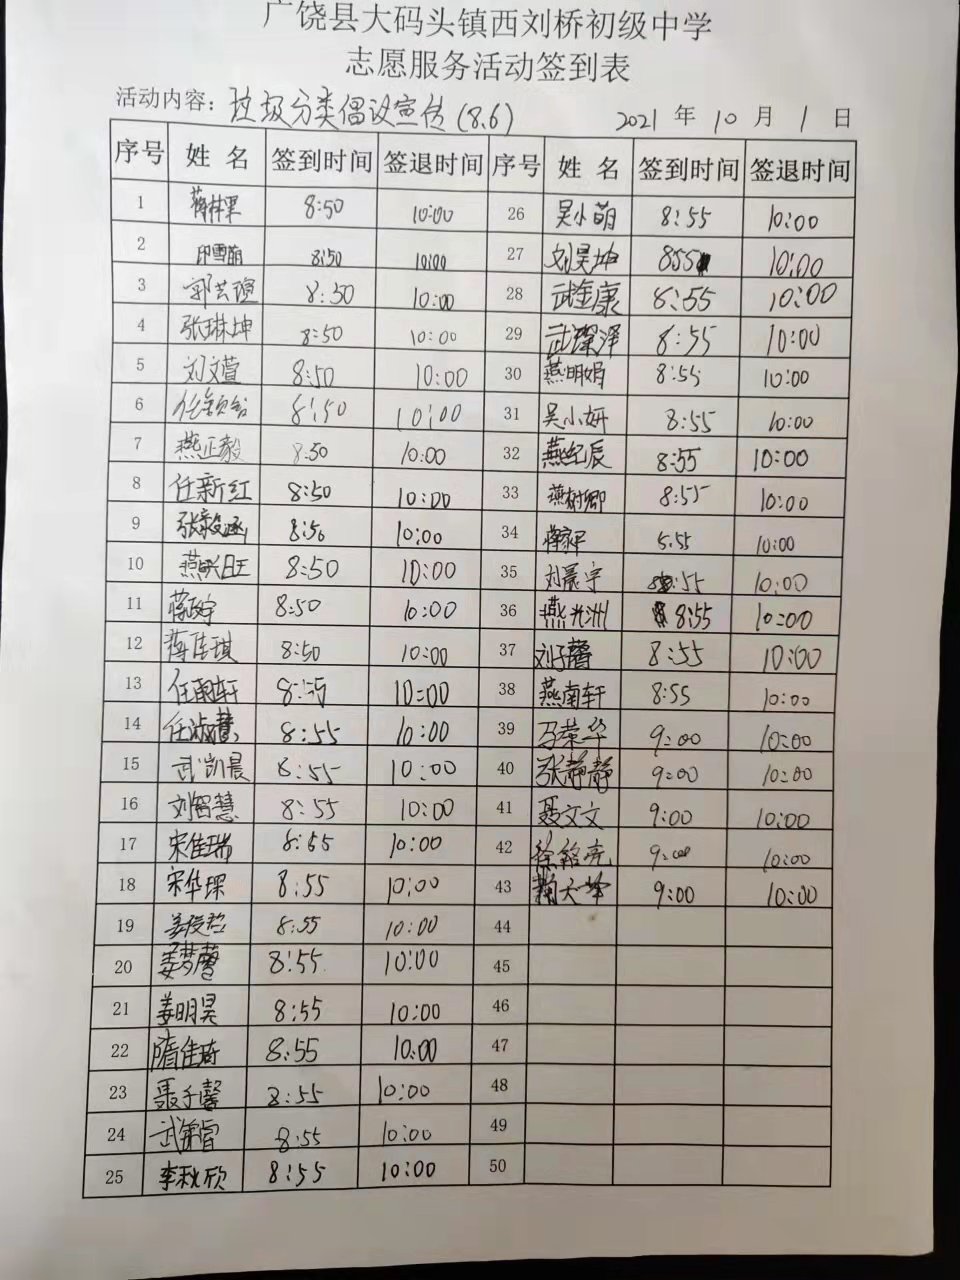 广饶县大码头镇西刘桥初级中学
志愿服务活动签到表
活动内容：垃圾分类倡议宣传(8.6) 2021 年 10 月 1 日
序号 姓名 签到时间 签退时间 序号 姓名 签到时间 签退时间
1 8:50 10:00 26 吴小萌 8:55 10:00
2 印雪萌 8:50 10:00 27 刘昊坤 855 10:00
3 郭芸瑄 8:50 10:00 28 武金康 8:55 10:00
4 张琳坤 8:50 10:00 29 武璨泽 8:55 10:00
5 刘文萱 8:50 10:00 30 燕明娟 8:55 10:00
6 8:50 10:00 31 吴小妍 8:55 10:00
7 燕正毅 8:50 10:00 32 燕纪辰 8:55 10:00
8 任新红 8:50 10:00 33 燕树卿 8:55 10:00
9 张毅涵 8:50 10:00 34 5:55 10:00
10 燕兴旺 8:50 10:00 35 刘晨宇 8:55 10:00
11 8:50 10:00 36 燕光洲 8:55 10:00
12 蒋佳琪 8:50 10:00 37 刘子馨 8:55 10:00
13 任雨轩 8:55 10:00 38 燕南轩 8:55 10:00
14 任淑慧 8:55 10:00 39 马荣华 9:00 10:00
15 武凯晨 8:55 10:00 40 张静静 9:00 10:00
16 刘智慧 8:55 10:00 41 聂文文 9:00 10:00
17 宋佳瑞 8:55 10:00 42 徐铭亮 9:00 10:00
18 宋华琛 8:55 10:00 43 9:00 10:00
19 8:55 10:00 44
20 姜梦蕾 8:55 10:00 45
21 姜明昊 8:55 10:00 46
22 隋佳琦 8:55 10:00 47
23 聂子馨 8:55 10:00 48
24 8:55 10:00 49
25 李秋欣 8:55 10:00 50